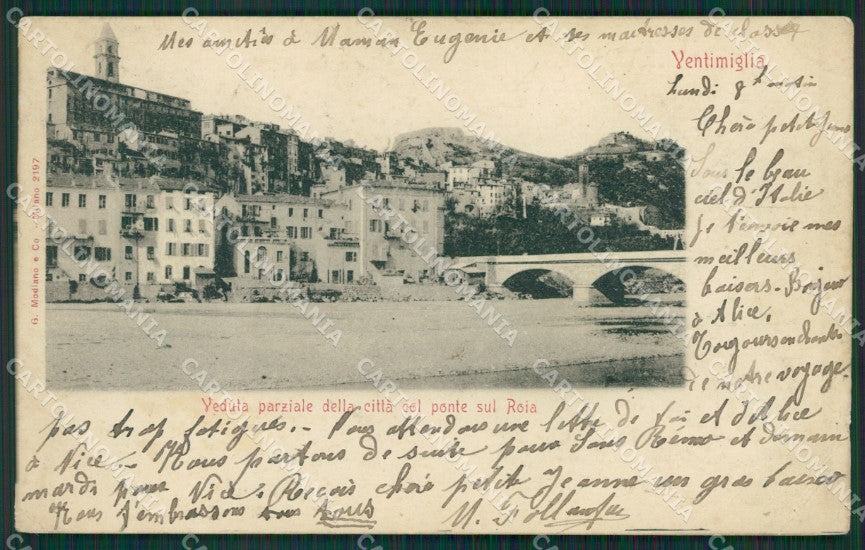 Mes amitiés à Maman Eugenie et ses maitresses de classe
Ventimiglia
Lundi 8h matin
Chère petite
Sous le beau
ciel d'Italie
Je t'envoie mes
meilleurs
baisers. Bonjour
à Alice.
Toujours enchantés
de notre voyage.
G. Modiano e Co - Milano 2197
Veduta parziale della città col ponte sul Roia
pas trop fatigués. - Nous attendons une lettre de toi et d'Alice
à Nice. - Nous partons de suite pour San Rémo et demain
mardi pour Nice. Reçois chère petite Jeanne un gros baiser
Nous t'embrassons tous
CARTOLINOMANIA